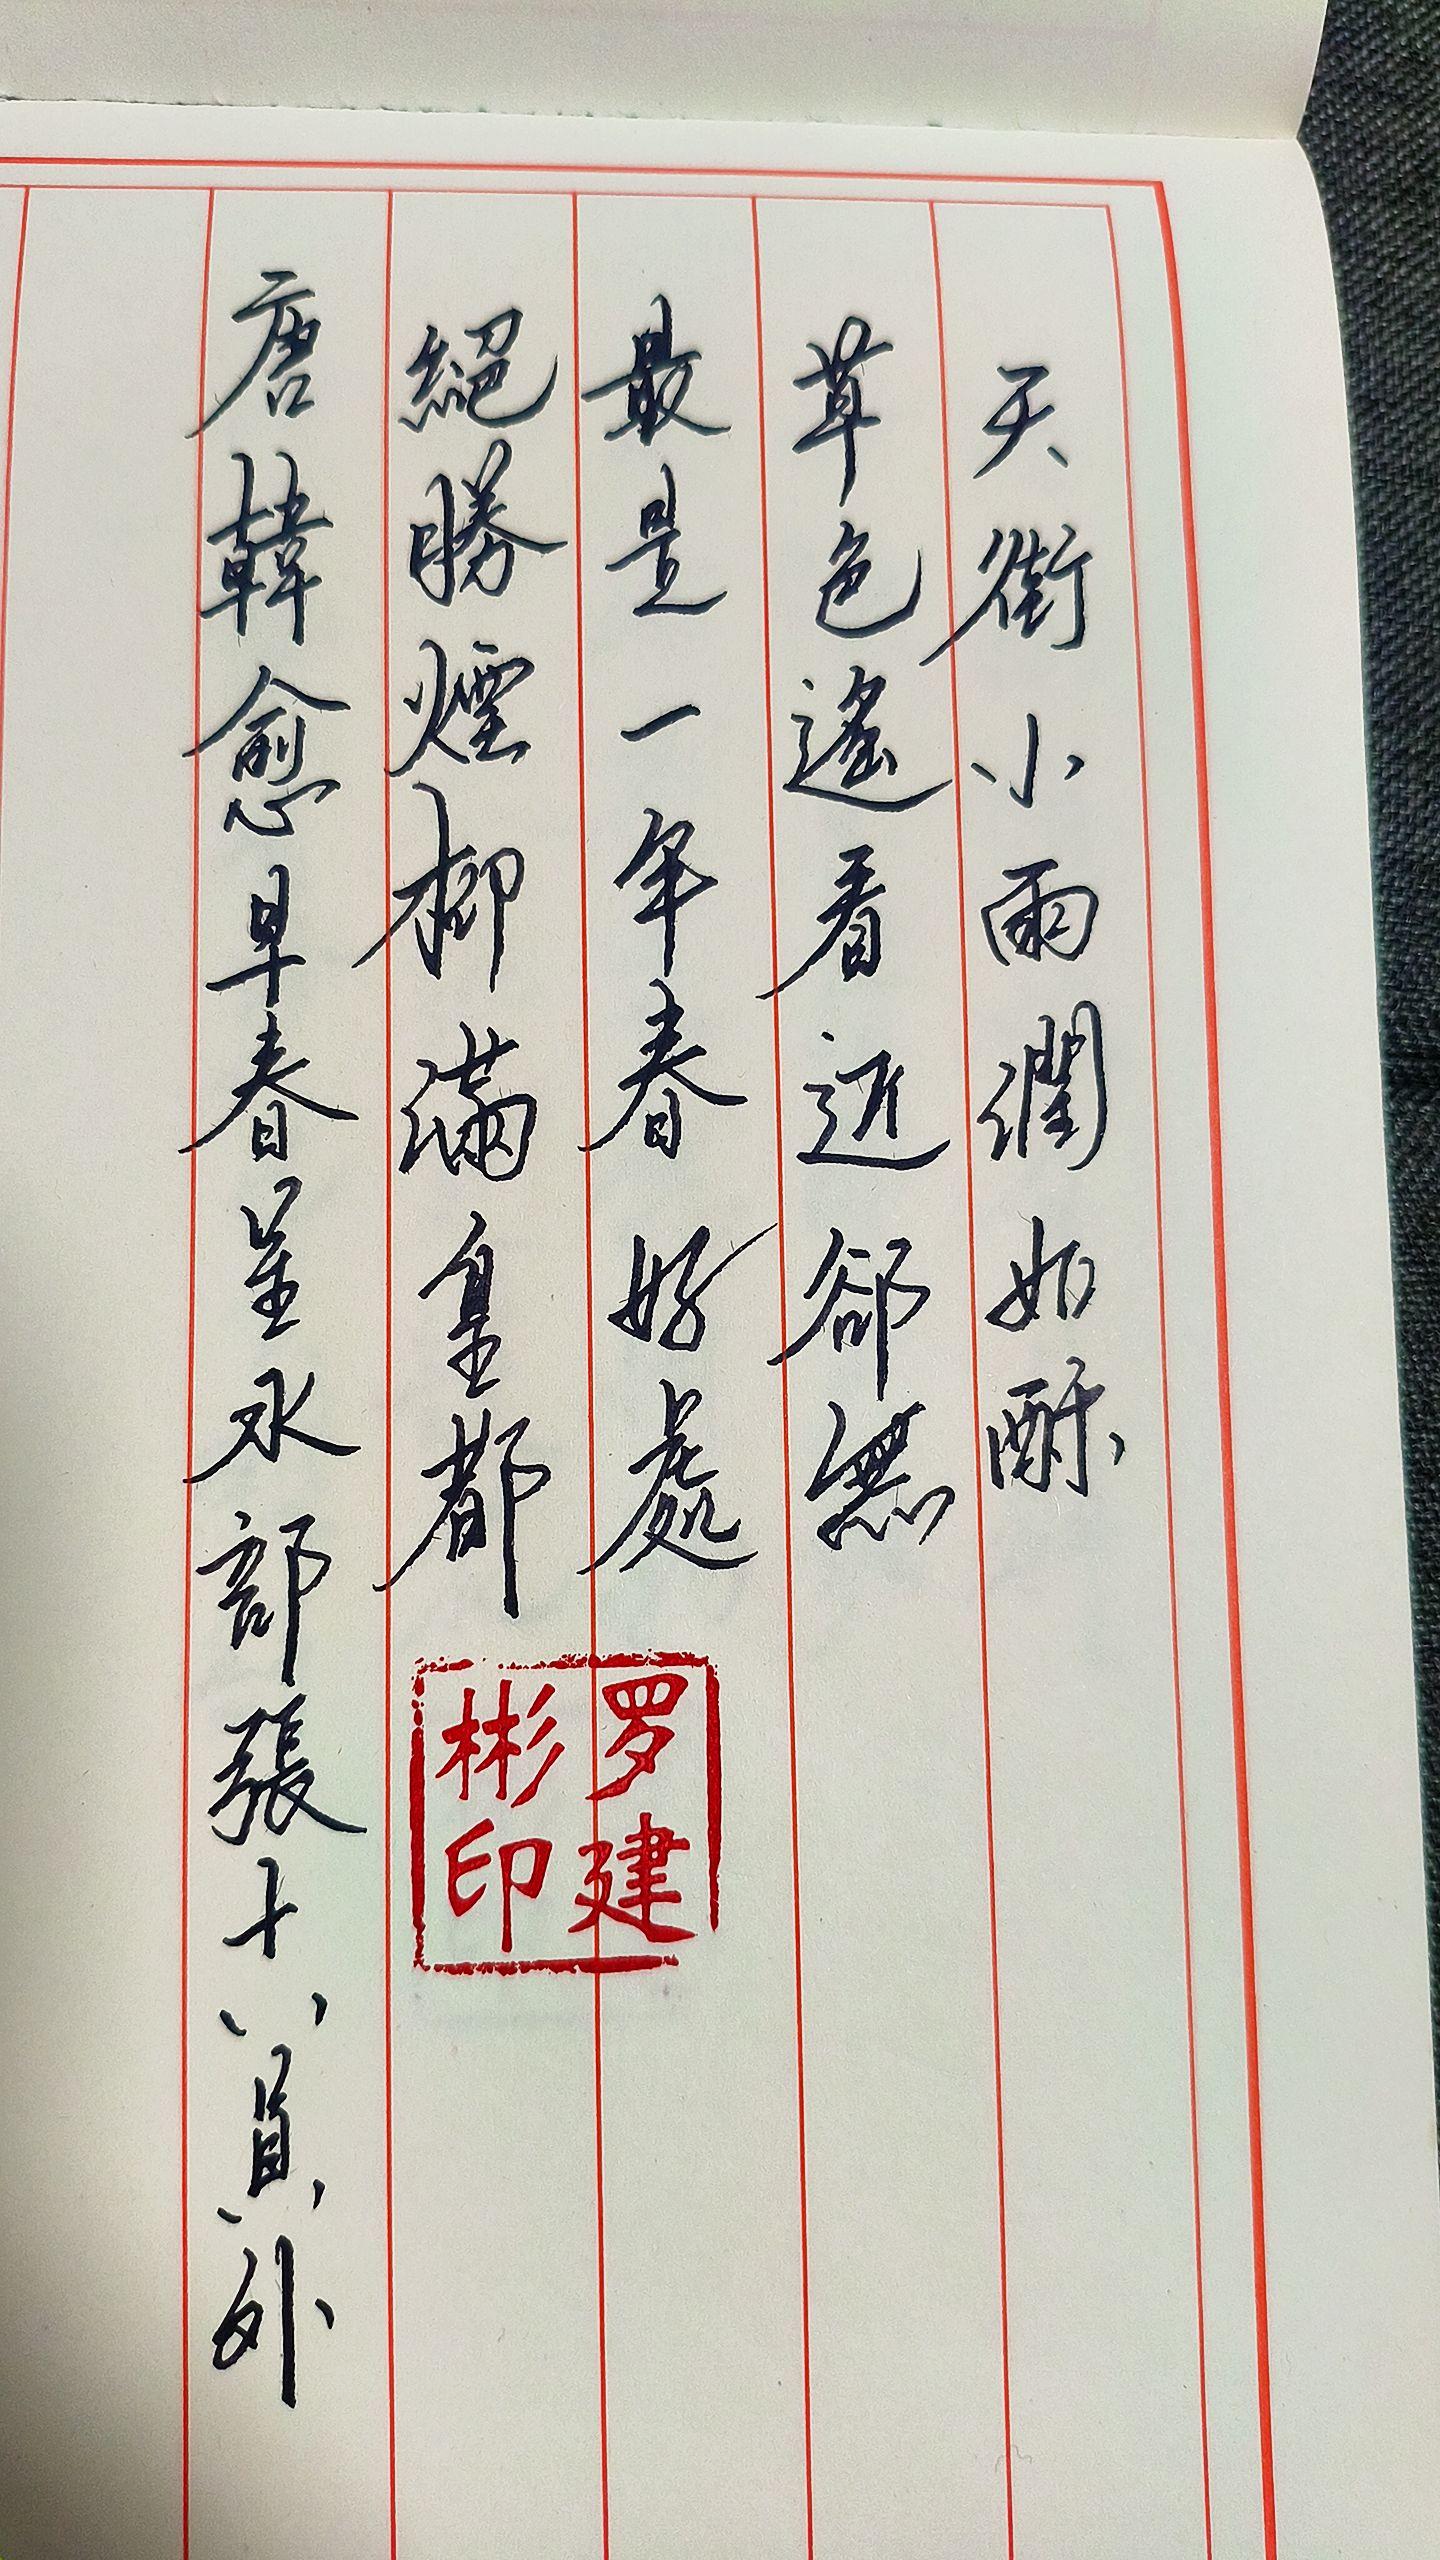 天街小雨潤如酥
草色遙看近卻無
最是一年春好處
絕勝煙柳滿皇都
唐韓愈早春呈水部張十八員外
罗建
彬印